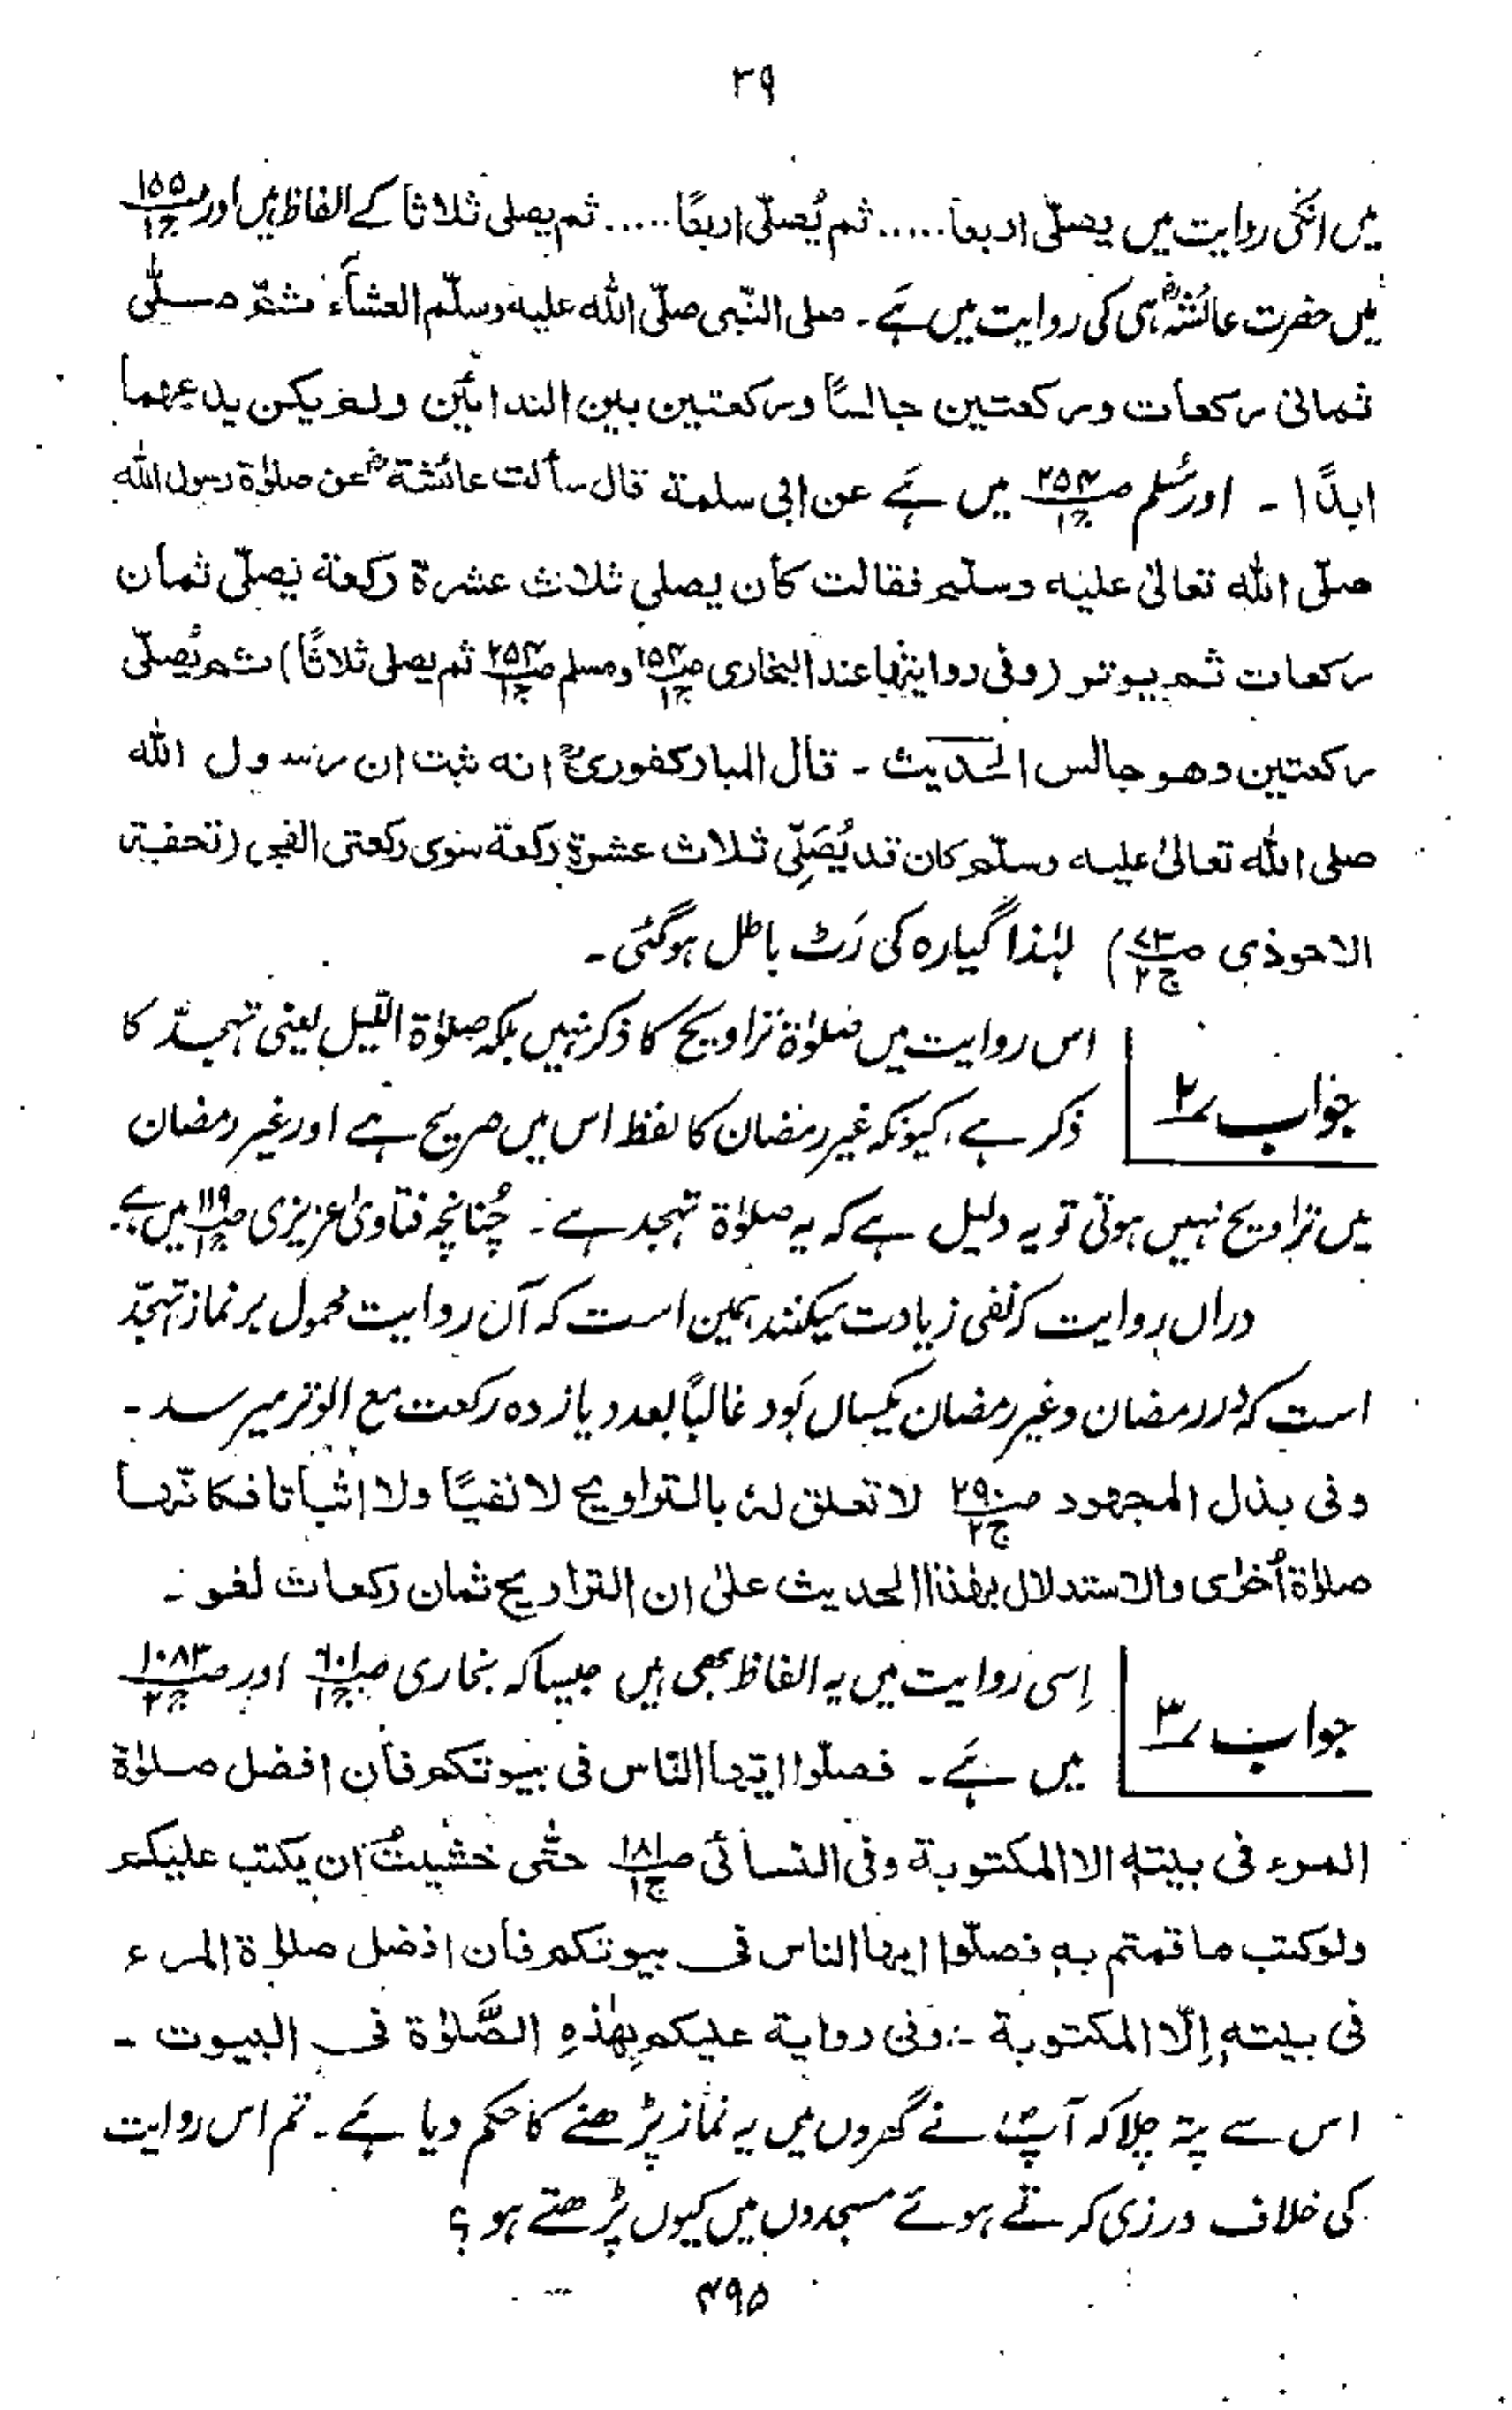 ۳۹
میں انکی روایت میں یصلّی اربعاً..... ثم یُصلّی اربعًا..... ثم یصلی ثلاثا کے الفاظ ہیں اور صـ۱۵۵ ج۱
میں حضرت عائشہؓ ہی کی روایت میں ہَے۔ صلی النّبی صلّی اللہ علیہ وسلّم العشآء ثمّ صلّی
ثمانی رکعات ورکعتین جالسًا ورکعتین بین الندائین ولم یکن یدعهما
ابدًا۔ اور مُسلم صـ۲۵۴ ج۱ میں ہَے عن ابی سلمة قال سألت عائشةؓ عن صلٰوة رسول اللہ
صلّی اللہ تعالیٰ علیہ وسلّم فقالت کان یصلی ثلاث عشرة رکعة یصلّی ثمان
رکعات ثم یوتر (وفی روایتها عند البخاری صـ۱۵۴ ج۱ ومسلم صـ۲۵۴ ج۱ ثم یصلی ثلاثًا) ثم یُصلّی
رکعتین وهو جالس الحدیث۔ قال المبارکفوریؒ انه ثبت ان رسول اللہ
صلی اللہ تعالیٰ علیہ وسلّم کان قد یُصَلِّی ثلاث عشرة رکعة سوی رکعتی الفجر (تحفة
الاحوذی صـ۷۳ ج۲) لہٰذا گیارہ کی رَٹ باطل ہوگئی۔
اس روایت میں صلوٰة تراویح کا ذکر نہیں بلکہ صلوٰة اللّیل یعنی تہجّد کا
جواب ۲؎ ذکر ہے، کیونکہ غیر رمضان کا لفظ اس میں صریح ہے اور غیر رمضان
میں تراویح نہیں ہوتی تو یہ دلیل ہے کہ یہ صلوٰة تہجد ہے۔ چُنانچہ فتاویٰ عزیزی صـ۱۱۹ ج۱ میں ہے
دراں روایت کہ نفی زیادت میکنند ہمین است کہ آں روایت محمول بر نماز تہجّد
است کہ در رمضان وغیر رمضان یکساں بُود غالباً بعدد یازدہ رکعت مع الوتر میرسد۔
وفی بذل المجهود صـ۲۹۰ ج۲ لا تعلق لهٗ بالتراویح لا نفیًا ولا اثباتا فکانّها
صلاة اُخرٰی والاستدلال بهٰذا الحدیث علیٰ ان التراویح ثمان رکعات لغو۔
اِسی روایت میں یہ الفاظ بھی ہیں جیساکہ بخاری صـ۱۰۱ ج۱ اور صـ۱۰۸۳ ج۲
جواب ۳؎ میں ہَے۔ فصلّوا ایّها النّاس فی بیوتکم فان افضل صلوٰة
المرء فی بیتهٖ الا المکتوبة وفی النسائی صـ۱۸۱ ج۱ حتّٰی خشیتُ ان یکتب علیکم
ولو کتب ما قمتم بهٖ فصلّوا ایها الناس فی بیوتکم فان افضل صلٰوة المرء
فی بیتهٖ اِلّا المکتوبة۔ وفی روایة علیکم بِهٰذهِ الصَّلوٰة فی البیوت۔
اس سے پتہ چلا کہ آپؐ نے گھروں میں یہ نماز پڑھنے کا حکم دیا ہَے۔ تم اس روایت
کی خلاف ورزی کرتے ہوئے مسجدوں میں کیوں پڑھتے ہو؟
۴۹۵